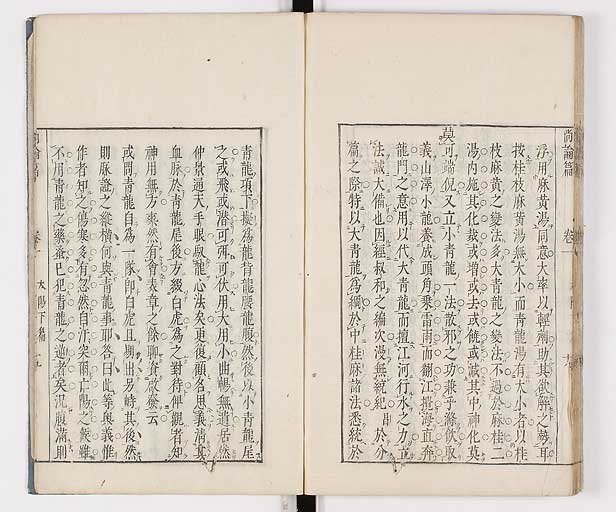 尚論篇 卷一
浮用麻黃湯同意大率以輕揚助其欲解之勢耳
按桂枝麻黃湯無大小而青龍湯有大小者以桂
枝麻黃之變法多大青龍之變法不過於麻桂二
湯內施其化裁或增或去或饒或減其中神化莫
莫可端倪又立小青龍一法散邪之功兼乎滌飲取
義山澤小龍養成頭角乘雷雨而翻江攪海直奔
龍門之意用以代大青龍而擅江河行水之力立
法誠大備也因經叔和之編次漫無統紀昌於分
篇之際特以大青龍為綱於中桂麻諸法悉統於
青龍項下擬為龍背龍腰龍腹然後以小青龍尾
之或飛或潛可弭可伏用大用小曲暢無遺居然
仲景通天手眼馭龍心法矣更復顧名思義清其
血脉於青龍尾後方綴白虎為之對待俾觀者知
神用無方爽然有會表章之餘聊資云
或問青龍自為一隊即白虎且別出另峙其後然
則脉證之縱橫何與青龍事耶答曰此等奧義惟
作者知之傷寒多有忽然自汗突爾亡陽之候雖
不用青龍之藥蚤已犯青龍之逆者矣況腹滿則
尚論篇 卷一 太陽下篇 十九